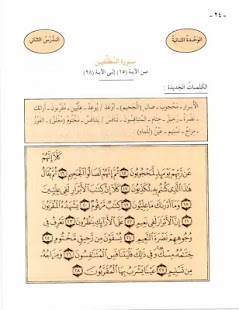 - ٢٤ -
الوحدة الثانية
الدرس الثاني
سورة المطففين
من الآية (١٥) إلى الآية (٢٨)
الكلمات الجديدة :
الأبرار - محجوب - صال (الجحيم) - أوعد / يوعد - عليين - مقربون - أرائك
نضرة - رحيق - ختام - المتنافسون - تنافس / يتنافس - مختوم (مغلق) - الفوز
مزاج - تسنيم - عين (الماء)
كلا إنهم
عن ربهم يومئذ لمحجوبون ١٥ ثم إنهم لصالوا الجحيم ١٦ ثم يقال
هذا الذي كنتم به تكذبون ١٧ كلا إن كتاب الأبرار لفي عليين
١٨ وما أدراك ما عليون ١٩ كتاب مرقوم ٢٠ يشهده المقربون
٢١ إن الأبرار لفي نعيم ٢٢ على الأرائك ينظرون ٢٣ تعرف في
وجوههم نضرة النعيم ٢٤ يسقون من رحيق مختوم ٢٥
ختامه مسك وفي ذلك فليتنافس المتنافسون ٢٦ ومزاجه
من تسنيم ٢٧ عينا يشرب بها المقربون ٢٨